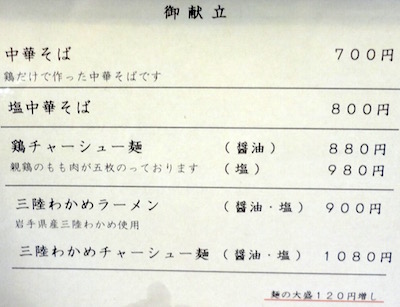 御献立
中華そば 700円
鶏だけで作った中華そばです
塩中華そば 800円
鶏チャーシュー麺 (醤油) 880円
親鶏のもも肉が五枚のっております (塩) 980円
三陸わかめラーメン (醤油・塩) 900円
岩手県産三陸わかめ使用
三陸わかめチャーシュー麺 (醤油・塩) 1080円
麺の大盛120円増し